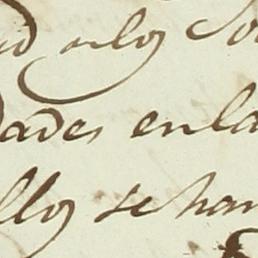 id a los So
dades en la
llos se han